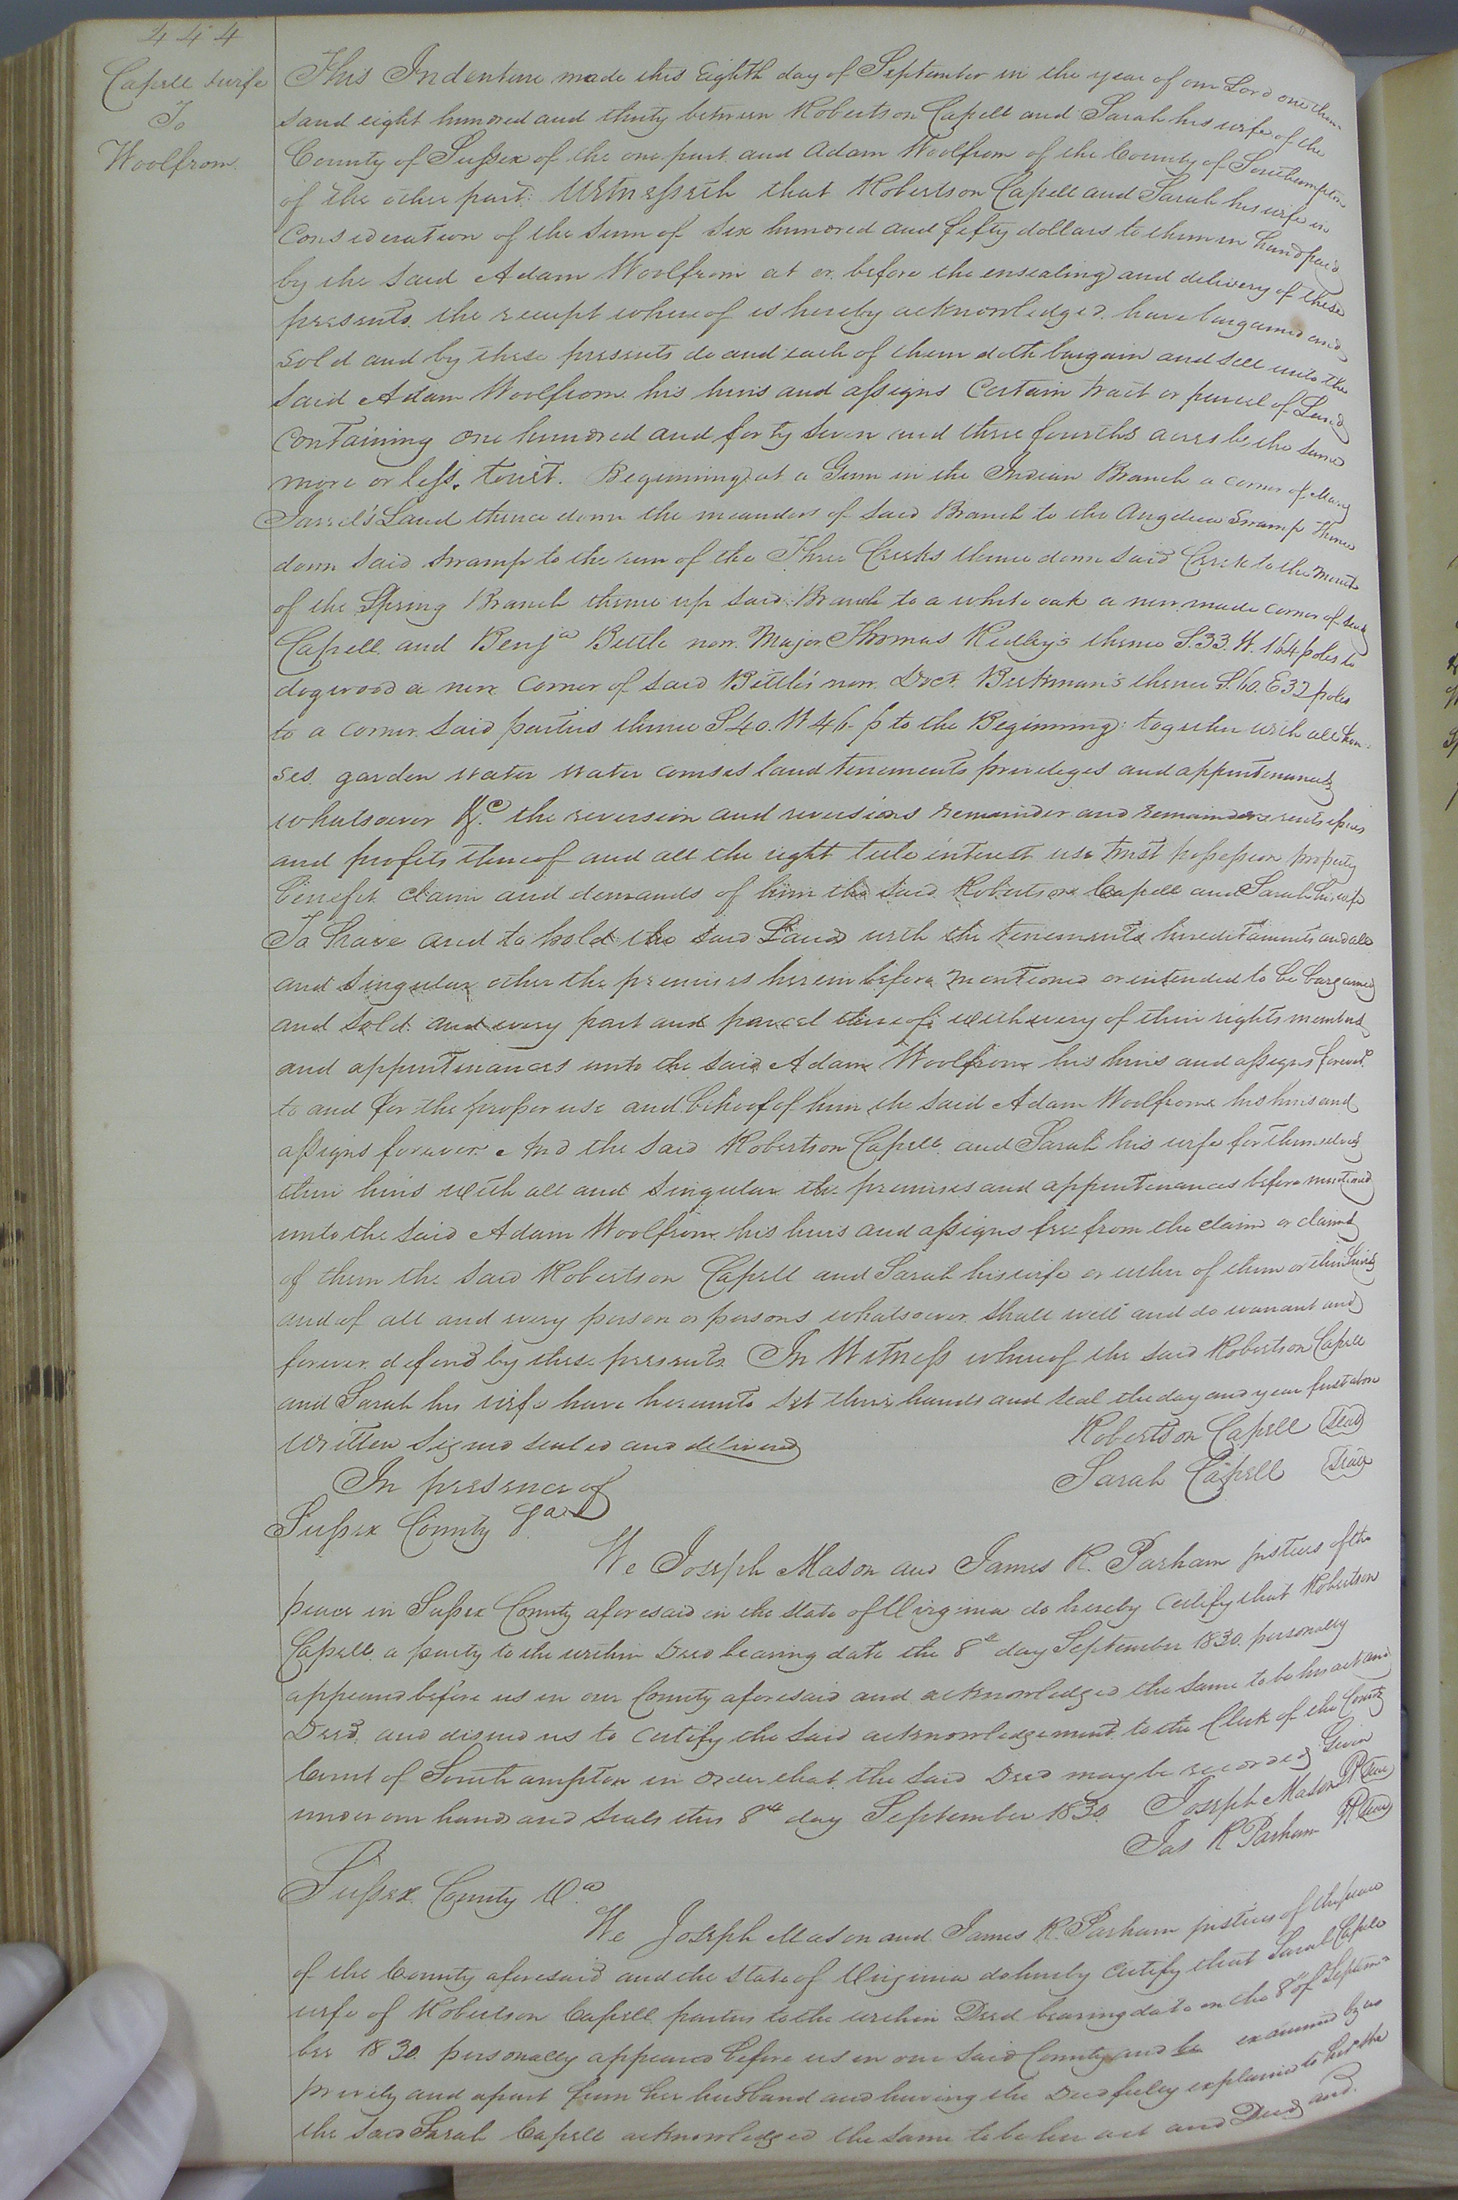 444
Capell & wife
To
Woolfrom
This Indenture made this Eighth day of September in the year of our Lord one thou-
sand eight hundred and thirty between Robertson Capell and Sarah his wife of the
County of Sussex of the one part and Adam Woolfrom of the County of Southampton
of the other part: Witnesseth that Robertson Capell and Sarah his wife in
Consideration of the Sum of Six hundred and fifty dollars to them in hand paid
by the said Adam Woolfrom at or before the ensealing and delivery of these
presents the receipt whereof is hereby acknowledged. have bargained and
sold and by these presents do and each of them doth bargain and sell unto the
said Adam Woolfrom his heirs and assigns Certain tract or parcel of Land
Containing one hundred and forty seven and three fourths acres be the same
more or less, towit. Beginning at a Gum in the Indian Branch a corner of Mary
Jarrel's Land thence down the meanders of said Branch to the Angelica Swamp thence
down said Swamp to the run of the Three Creeks thence down said Creek to the mouth
of the Spring Branch thence up said Branch to a white oak a new made corner of said
Capell and Benja Bittle now Major Thomas Ridley's thence S.33.W. 164 poles to
dogwood a new Corner of said Bittle's now Doct. Beekman's thence S.60.E 32 poles
to a corner said parties thence S 40. W 46 p to the Beginning: together with all hou-
ses garden water water courses land tenements priviledges and appurtenances
whatsoever &c the reversion and reversions remainder and remainders rents issues
and profits thereof and all the right title interest use trust possession property
benefit claim and demands of him the said Robertson Capell and Sarah his wife
To have and to hold the said Land with the tenements hereditaments and all
and singular other the premises herein before mentioned or intended to be bargained
and sold and every part and parcel thereof with every of their rights members
and appurtenances unto the said Adam Woolfrom his heirs and assigns forever
to and for the proper use and behoof of him the said Adam Woolfrom his heirs and
assigns forever. And the said Robertson Capell and Sarah his wife for themselves
their heirs with all and singular the premises and appurtenances before mentioned
unto the said Adam Woolfrom his heirs and assigns free from the claim or claims
of them the said Robertson Capell and Sarah his wife or either of them or their heirs
and of all and every person or persons whatsoever shall will and do warrant and
forever defend by these presents In Witness whereof the said Robertson Capell
and Sarah his wife have hereunto set their hands and seal the day and year first above
written Signed sealed and delivered
Robertson Capell Seal
In presence of
Sarah Capell Seal
Sussex County Va
We Joseph Mason and James R. Parham justices of the
peace in Sussex County aforesaid in the State of Virginia do hereby Certify that Robertson
Capell a party to the within Deed bearing date the 8th day September 1830 personally
appeared before us in our County aforesaid and acknowledged the same to be his act and
Deed and desired us to certify the said acknowledgement to the Clerk of the County
Court of Southampton in order that the said Deed may be recorded Given
under our hand and Seals this 8th day September 1830.
Joseph Mason Seal
Jas R Parham Seal
Sussex County Va
We Joseph Mason and James R. Parham justices of the peace
of the County aforesaid and the State of Virginia do hereby Certify that Sarah Capell
wife of Robertson Capell parties to the within Deed bearing date on the 8th of Septem-
ber 1830 personally appeared before us in our said County and be examined by us
privily and apart from her husband and having the Deed fully explained to her the
the said Sarah Capell acknowledged the same to be her act and Deed and